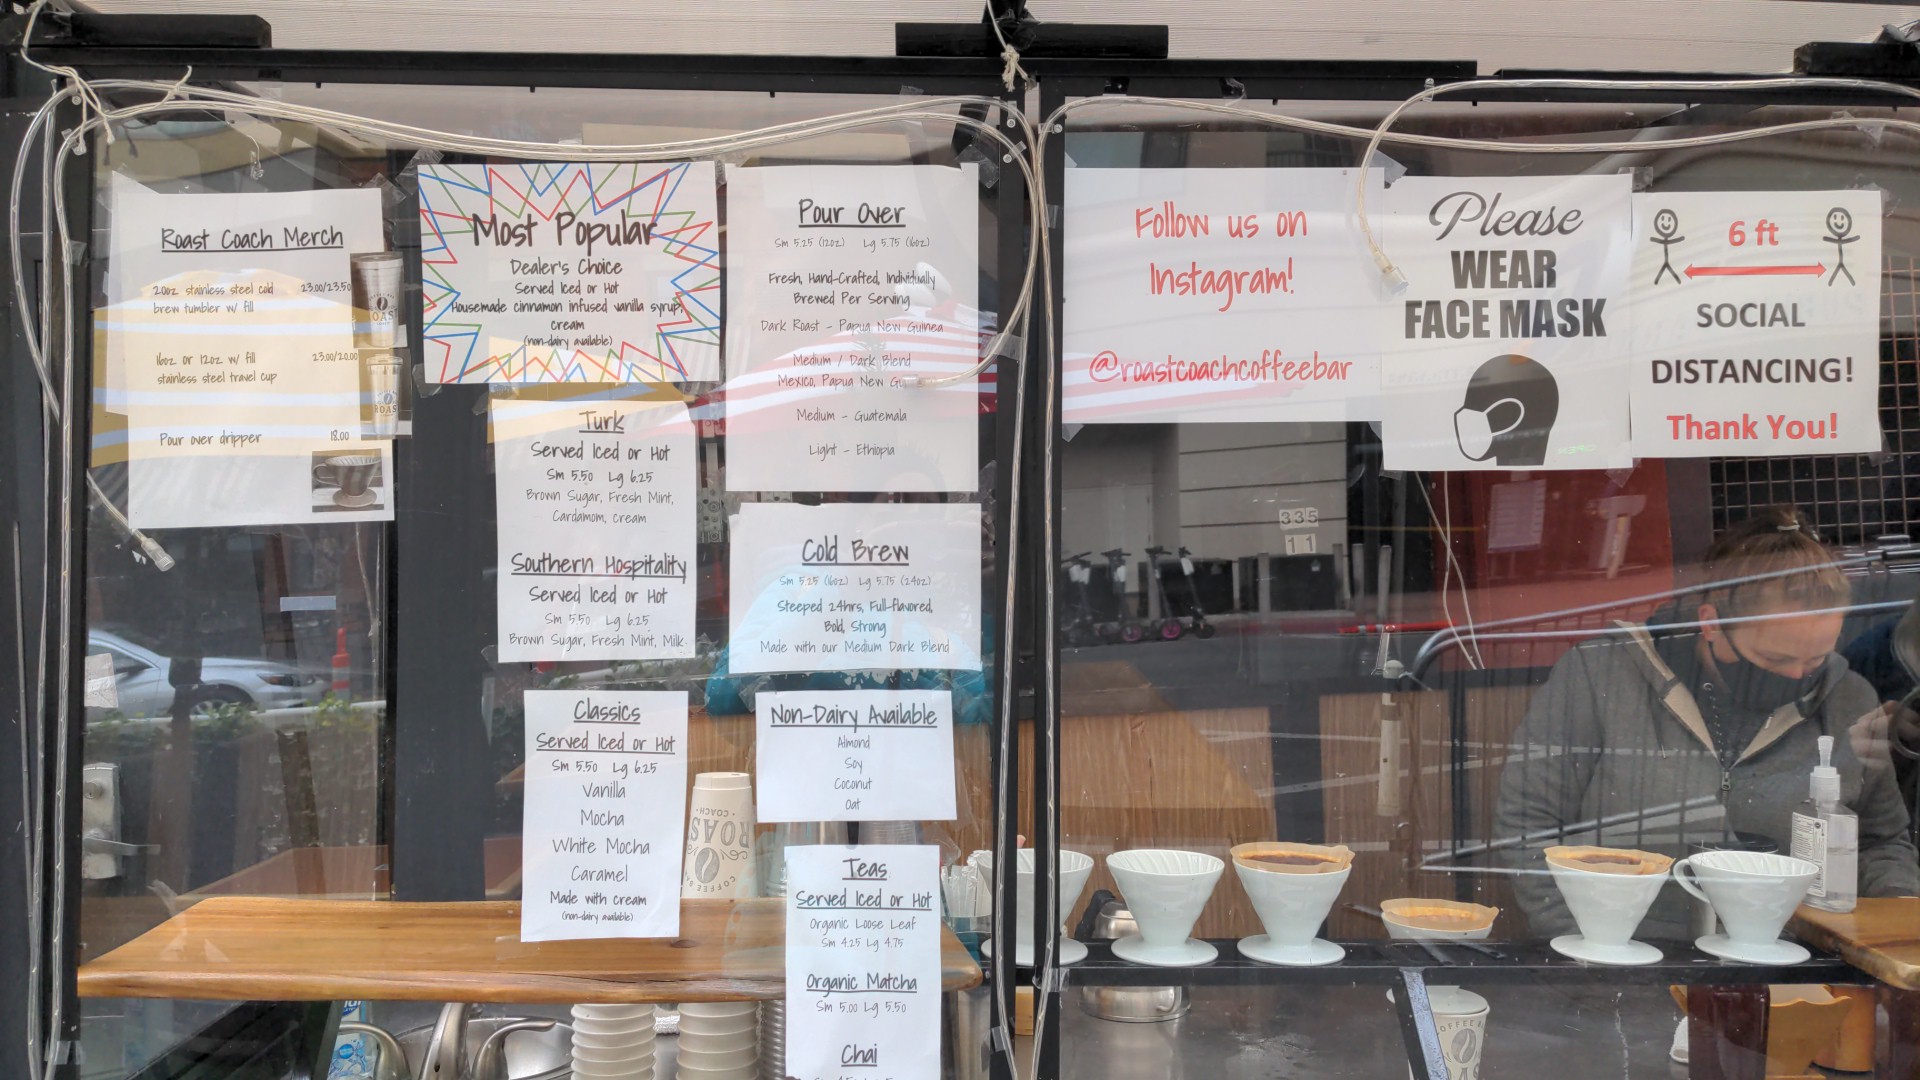 Roast Coach Merch
20oz stainless steel cold 23.00/23.50
brew tumbler w/ fill
16oz or 12oz w/ fill 23.00/20.00
stainless steel travel cup
Pour over dripper 18.00
Most Popular
Dealer's Choice
Served Iced or Hot
Housemade cinnamon infused vanilla syrup,
cream
(non-dairy available)
Turk
Served Iced or Hot
Sm 5.50 Lg 6.25
Brown Sugar, Fresh Mint,
Cardamom, cream
Southern Hospitality
Served Iced or Hot
Sm 5.50 Lg 6.25
Brown Sugar, Fresh Mint, Milk
Classics
Served Iced or Hot
Sm 5.50 Lg 6.25
Vanilla
Mocha
White Mocha
Caramel
Made with cream
(non-dairy available)
Pour Over
Sm 5.25 (12oz) Lg 5.75 (16oz)
Fresh, Hand-Crafted, Individually
Brewed Per Serving
Dark Roast - Papua New Guinea
Medium / Dark Blend
Mexico, Papua New Gu
Medium - Guatemala
Light - Ethiopia
Cold Brew
Sm 5.25 (16oz) Lg 5.75 (24oz)
Steeped 24hrs, Full-flavored,
Bold, Strong
Made with our Medium Dark Blend
Non-Dairy Available
Almond
Soy
Coconut
Oat
Teas
Served Iced or Hot
Organic Loose Leaf
Sm 4.25 Lg 4.75
Organic Matcha
Sm 5.00 Lg 5.50
Chai
Follow us on
Instagram!
@roastcoachcoffeebar
Please
WEAR
FACE MASK
6 ft
SOCIAL
DISTANCING!
Thank You!
335
11
ROAST
COACH
COFFEE BAR